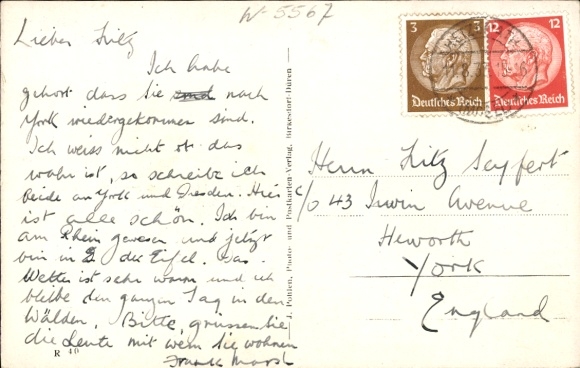 W 5567
Lieber Fritz
Ich habe
gehört dass Sie nach
York wiedergekommen sind.
Ich weiss nicht ob das
wahr ist, so schreibe ich
beide an York und Dresden. Hier
ist alle schön. Ich bin
am Rhein gewesen und jetzt
bin in der Eifel. Das
Wetter ist sehr warm und ich
bleibe den ganzen Tag in den
Wälden. Bitte, grüssen Sie
die Leute mit wem Sie wohnen
Frank Marsh
R 40
J. Pottlen, Photo- und Postkarten-Verlag, Birkesdorf-Düren
3 3
Deutsches Reich
12 12
Deutsches Reich
Herrn Fritz Seyfert
c/o 43 Irwin Avenue
Heworth
York
England